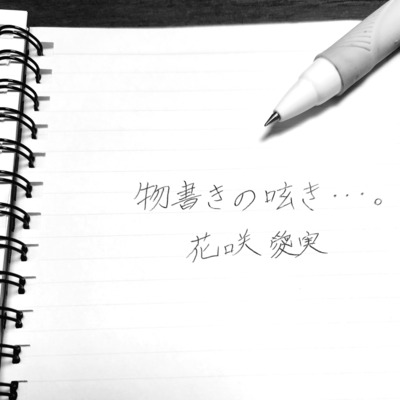 物書きの呟き…。
花咲 愛実